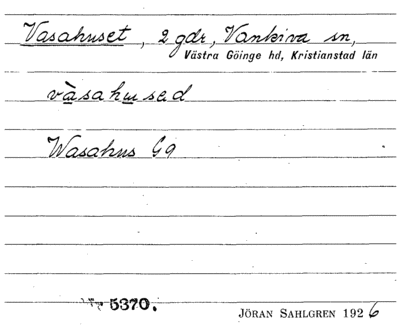 Vasahuset, 2 gdr, Vankiva sn,
Västra Göinge hd, Kristianstad län
vàsahusad
Wasahus G9
Nr 5370.
JÖRAN SAHLGREN 1926